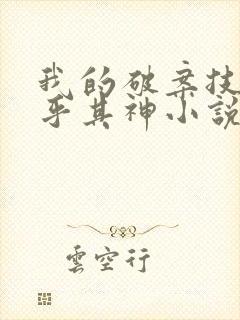 我的破案技
乎其神小說
雲空行